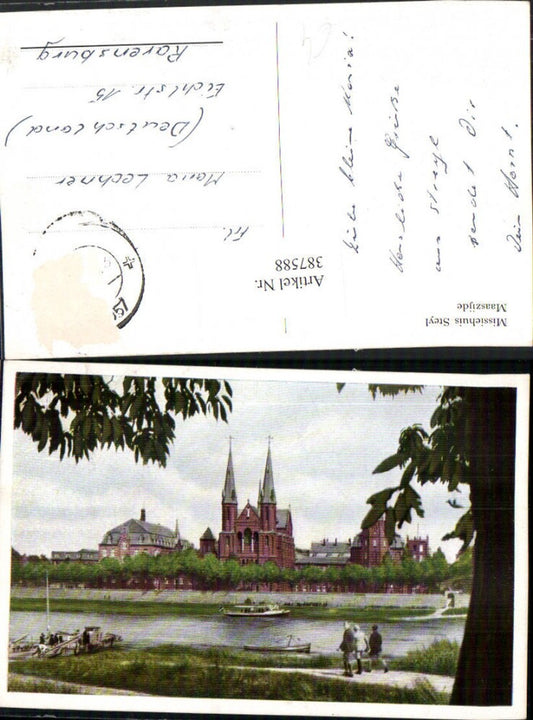 Missiehuis Steyl
Maaszijde
Liebe kleine Maria!
Herzliche Grüße
aus Steyl
sendet Dir
Dein Horst.
Artikel Nr.
387588
Frl.
Maria Lechner
(Deutschland)
Eichlstr. 15
Ravensburg